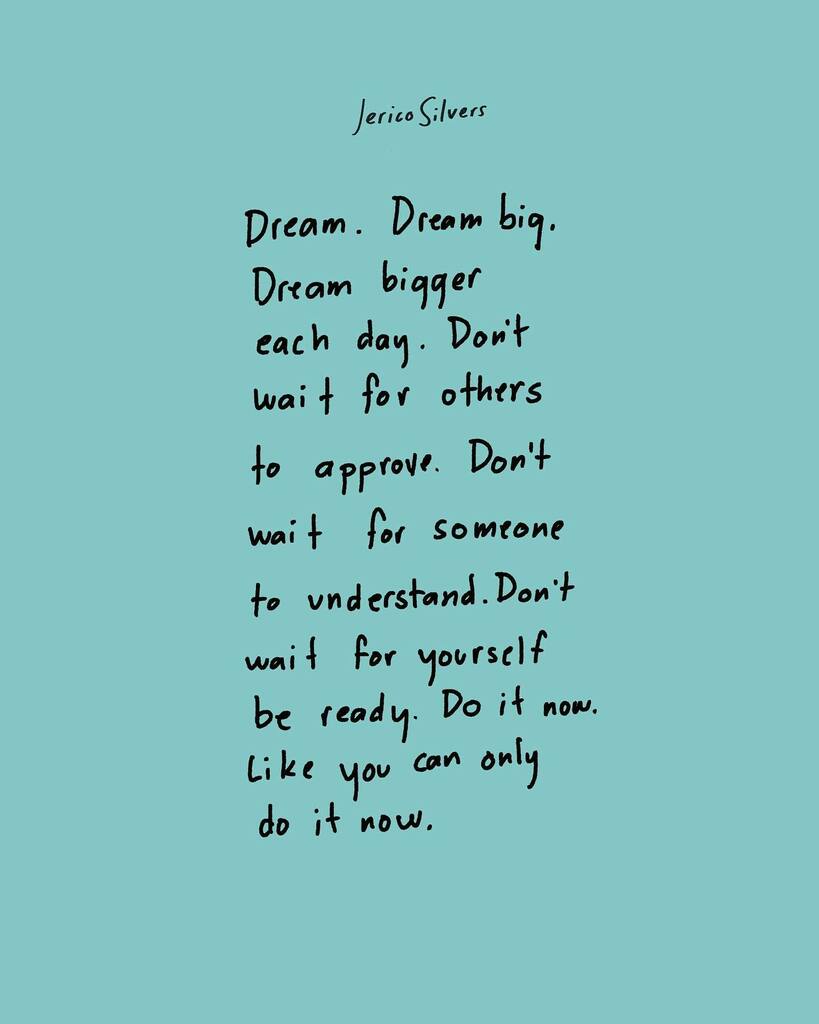 Jerico Silvers
Dream. Dream big.
Dream bigger
each day. Don't
wait for others
to approve. Don't
wait for someone
to understand. Don't
wait for yourself
be ready. Do it now.
Like you can only
do it now.